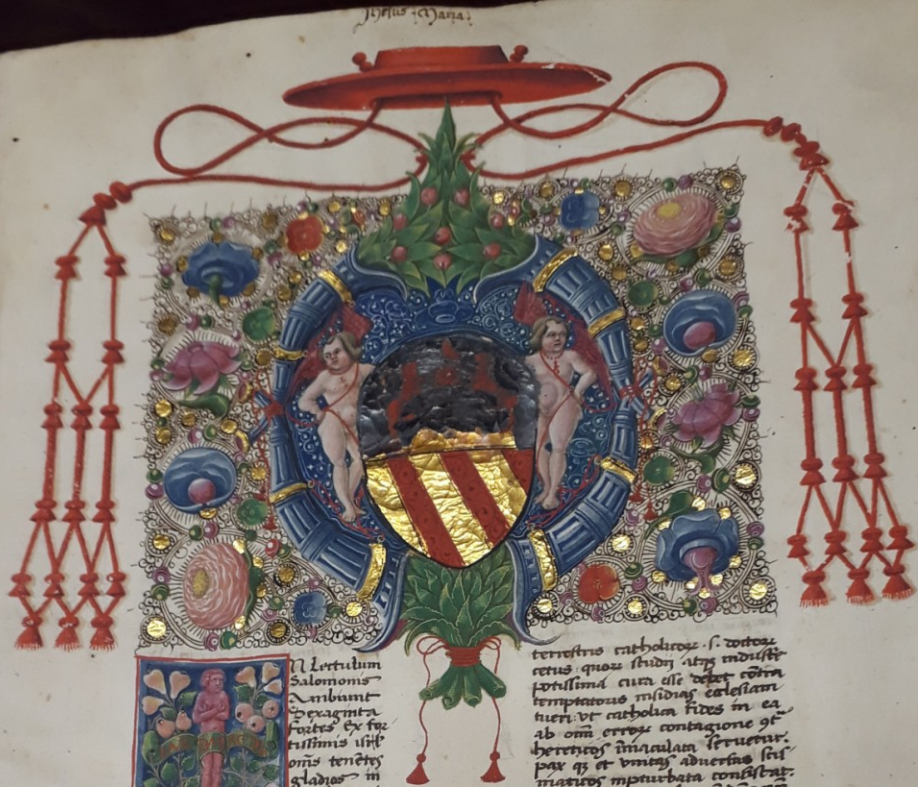 Jhesus Maria:
N Lectulum
Salomonis
Ambiunt
Sexaginta
fortes ex for
tissimis isrl
oms tenẽtes
gladios in
terrestris catholicor̃ .s. doctor̃
cetus: quor̃ studii atq̃ industr̃
potissima cura esse debet cõtra
temptatorũ insidias ecclesiam
tueri: vt catholica fides in ea
ab omi errore contagione
hereticos ĩmaculata seruetur.
pax q̃ et vnitas aduersus scis
maticos inpturbata consistat: